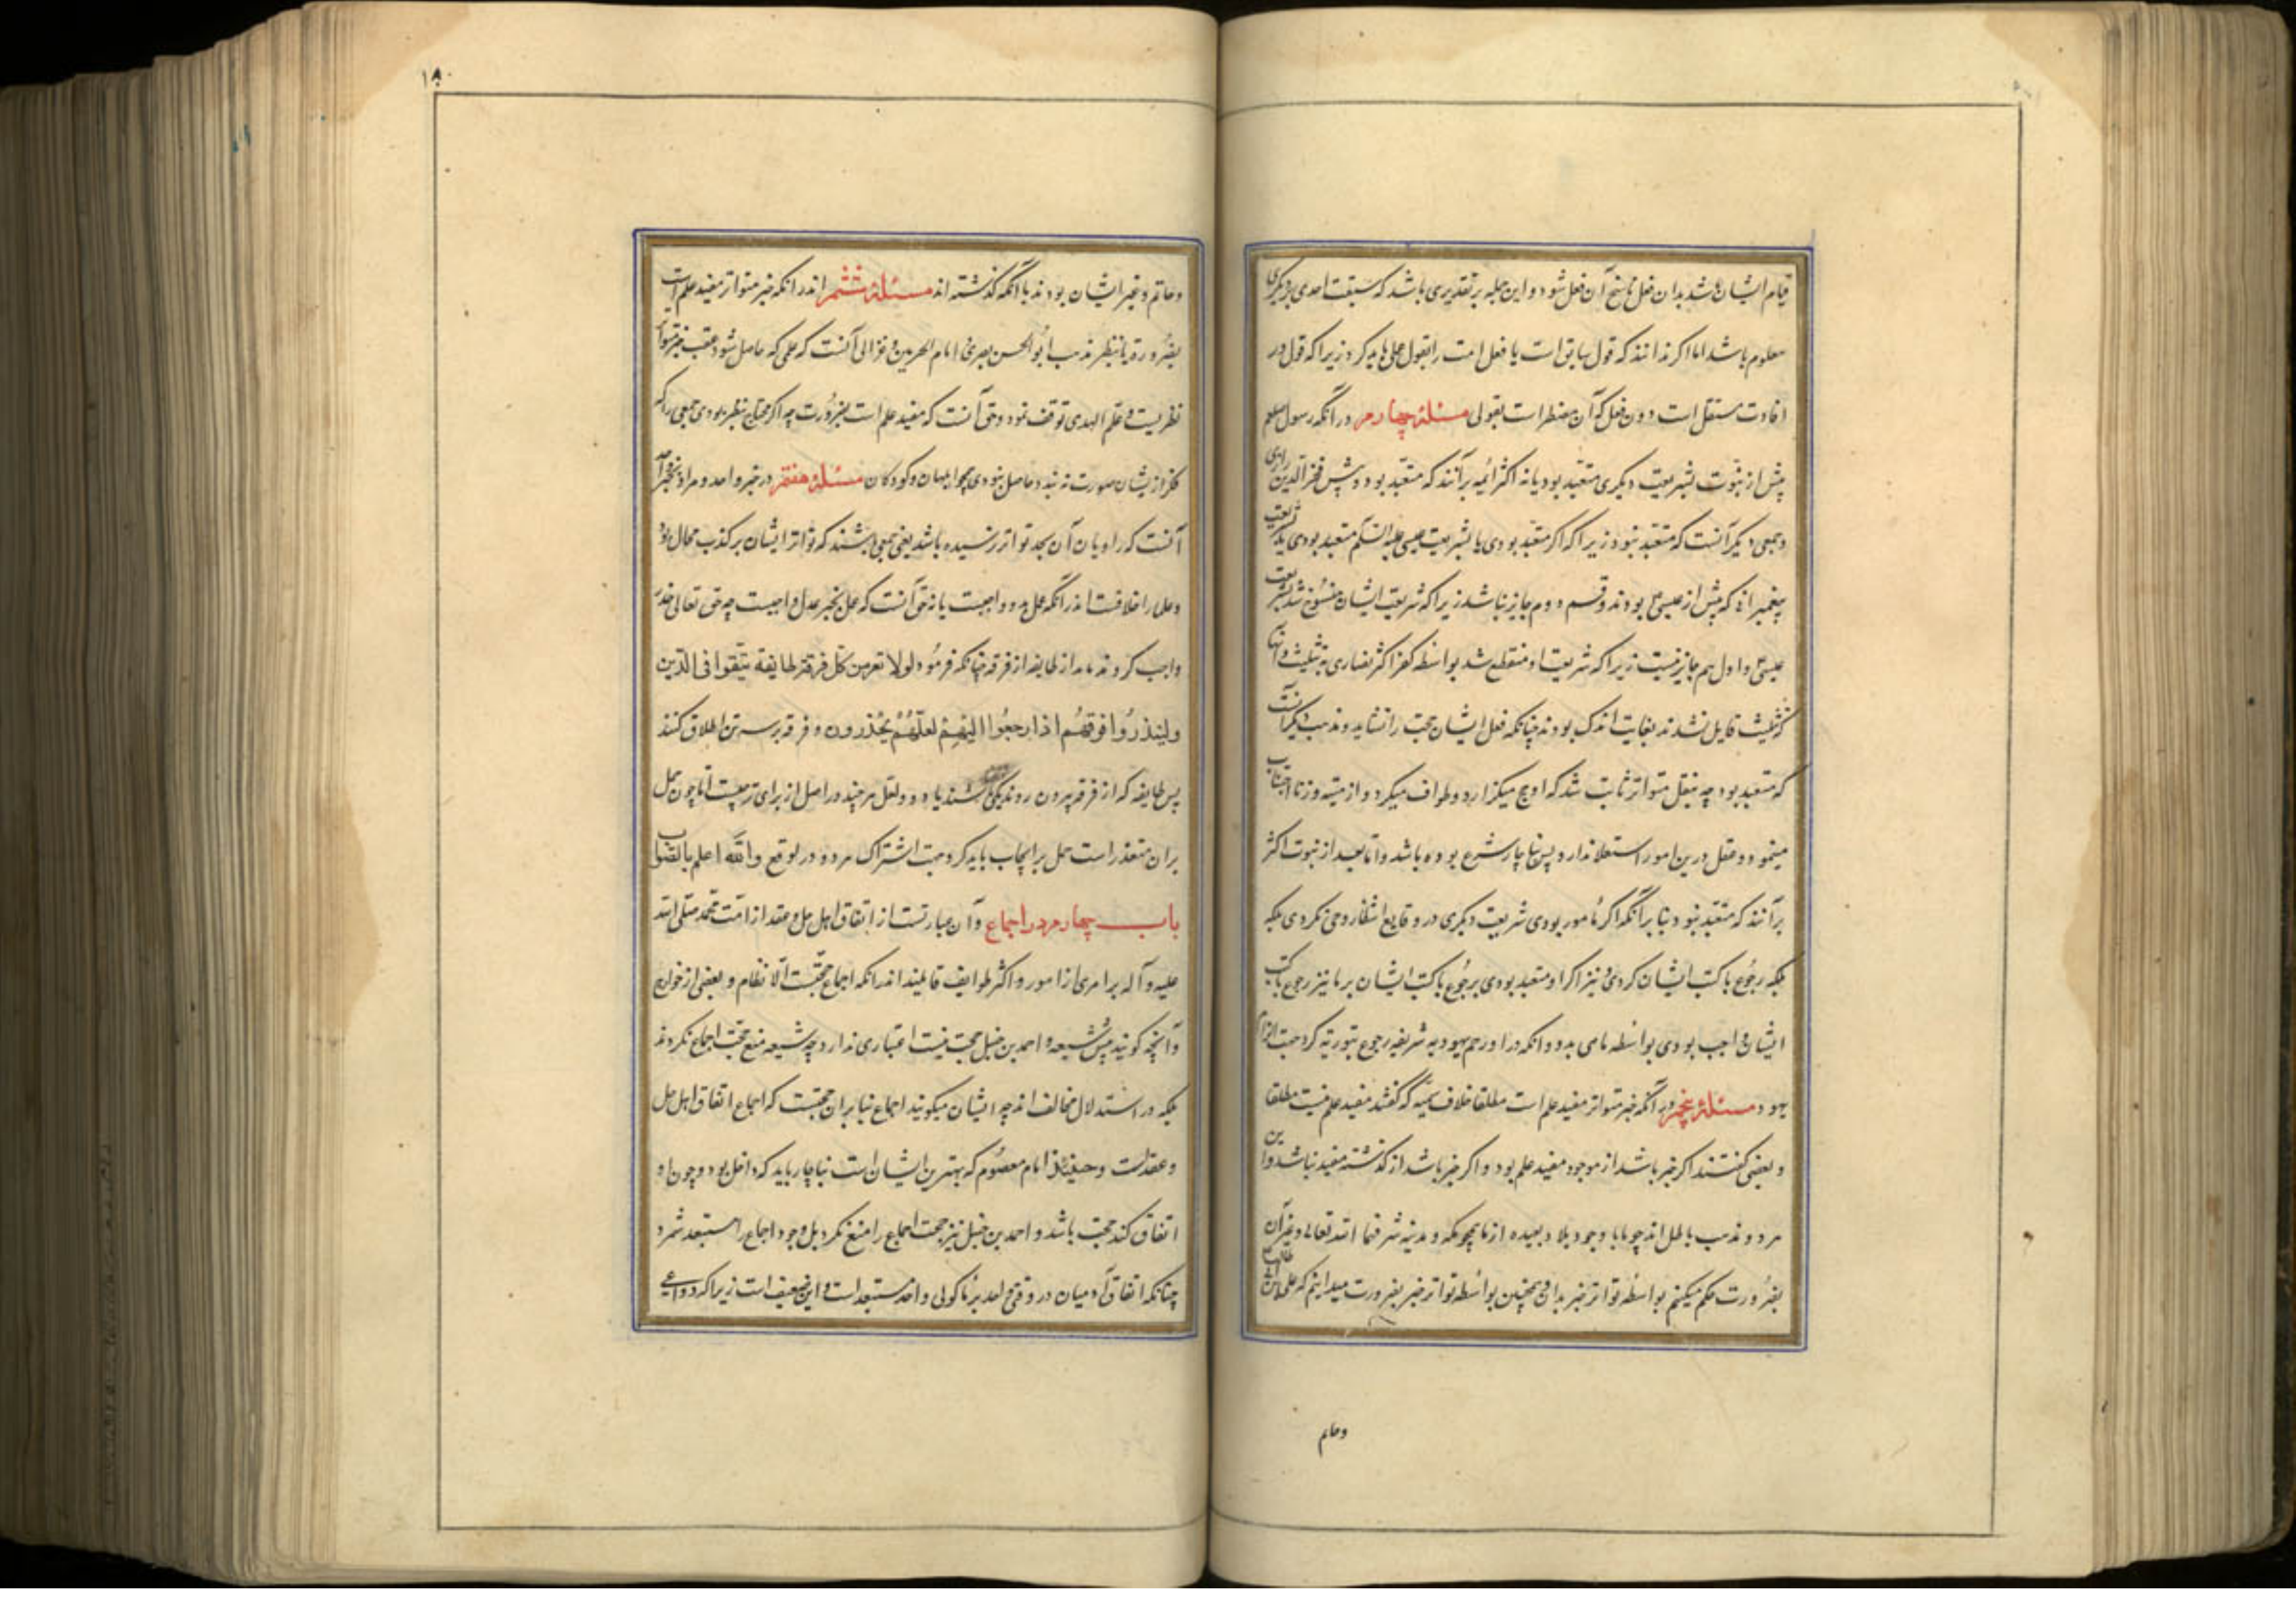 قیام ایشان باشد بدان فعل ناسخ آن فعل شود و این جمله بر تقدیری باشد که سبقت احدی بر دیگری
معلوم باشد اما اکر ندانند که قول سابق است یا فعل امت را بقول عمل باید کرد زیرا که قول در
افادت مستقل است دون فعل که آن مضطر است بقولی مسئلۀ چهارم در آنکه رسول صلعم
پیش از نبوت بشریعت دیکری متعبد بود یا نه اکثر ائمه برآنند که متعبد بود و پیش فخرالدین رازی
و جمعی دیکر آنست که متعبد نبود زیرا که اکر متعبد بودی یا بشریعت عیسی علیه السلم متعبد بودی یا بشریعت
پیغمبرانی که پیش از عیسی بودند و قسم دوم جایز نباشد زیرا که شریعت ایشان منسوخ شد بشریعت
عیسی و اول هم جایز نیست زیرا که شریعت او منقطع شد بواسطه کفر اکثر نصاری به تثلیث و آنها
که بتثلیث قایل نشدند بغایت اندک بودند چنانکه فعل ایشان حجت را نشاید و مذهب دیکر آنست
که متعبد بود چه بنقل متواتر ثابت شد که او حج میکزارد و طواف میکرد و از میته و زنا اجتناب
مینمود و عقل درین امور استعلا ندارد پس ناچار شرع بوده باشد و اما بعد از نبوت اکثر
برآنند که متعبد نبود بنا بر آنکه اکر مأمور بودی شریعت دیکری در وقایع انتظار وحی نکردی بلکه
بلکه رجوع با کتب ایشان کردی و نیز اکر او متعبد بودی برجوع با کتب ایشان بر ما نیز رجوع با کتب
ایشان واجب بودی بواسطه تاسی بدو و آنکه در اورجم یهودیه شریفه رجوع بتوریة کرد جهت الزام
یهود مسئلۀ پنجم در آنکه خبر متواتر مفید علم است مطلقا خلاف سمنیه که گفتند مفید علم نیست مطلقا
و بعضی کفتند اکر خبر باشد از موجود مفید علم بود و اکر خبر باشد از کذشته مفید نباشد و این
هر دو مذهب باطل اند چو ما با وجود بلاد بعیده از ما همچو مکه و مدینه شرفهما الله تعالی و غیر آن
بضرورت حکم میکنیم بواسطه تواتر خبر بدان و همچنین بواسطه تواتر خبر بضرورت میدانیم که علی بن ابی طالب
وحاتم
۱۸۰
و حاتم و غیر ایشان بودند با آنکه کذشته اند مسئلۀ ششم اندر آنکه خبر متواتر مفید علم است
بضرورة یا بنظر مذهب ابو الحسن بصری و امام الحرمین و غزالی آنست که علمی که حاصل شود عقب خبر متواتر
نظریست و علم الهدی توقف نمود و حق آنست که مفید علم است بضرورت چه اکر محتاج نظر بودی جمعی را که
فکر از ایشان صورت نه بندد حاصل نبودی همچو ابلهان و کودکان مسئلۀ هفتم در خبر واحد و مراد بخبر واحد
آنست که راویان آن بحد تواتر نرسیده باشد یعنی جمعی باشند که تواتر ایشان بر کذب محال بود
و علما را خلافست اندر آنکه عمل بدو واجبست یا نه حق آنست که عمل بخبر عدل واجبست چه حق تعالی حذر
واجب کردند از طایفه از فرقه چنانکه فرمود لولا نفر من کل فرقة طایفة یتفقهوا فی الدین
ولینذروا قومهم اذا رجعوا الیهم لعلهم یحذرون و فرقه بر سه تن اطلاق کنند
پس طایفه که از فرقه بیرون روند یکی باشند یا دو و لعل هر چند در اصل از برای ترجیست اما چون حمل
بران متعذر است حمل بر ایجاب باید کرد جهت اشتراک هر دو در توقع والله اعلم بالصواب
باب چهارم در اجماع و آن عبارتست از اتفاق اهل حل و عقد از امت محمد صلی الله
علیه و آله بر امری از امور و اکثر طوایف قایلند اندر آنکه اجماع حجتست الا نظام و بعضی از خوارج
و آنچه کویند پیش شیعه و احمد بن حنبل حجت نیست اعتباری ندارد چه شیعه منع حجت اجماع نکردند
بلکه در استدلال مخالف اند چه ایشان میکویند اجماع بنا بران حجتست که اجماع اتفاق اهل حل
و عقد است و حینئذ امام معصوم که بهترین ایشان است بناچار باید که داخل بود و چون او
اتفاق کند حجت باشد و احمد بن حنبل نیز حجت اجماع را منع نکرد بل وجود اجماع را مستبعد شمرد
چنانکه اتفاق آدمیان در وقتی واحد بر ماکولی واحد مستبعد است و این ضعیف است زیرا که دواعی